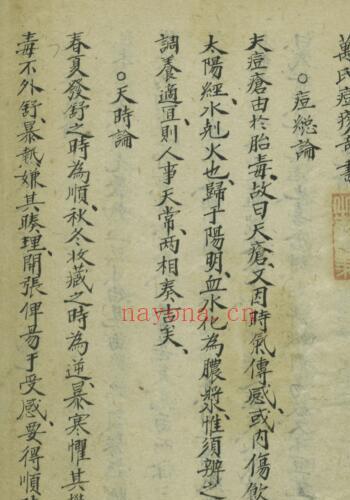 萬氏痘疹奇書
○痘總論
夫痘瘡由於胎毒、故曰天瘡、又因時氣傳感、或內傷飲
太陽經、水剋火也、歸于陽明、血水化為膿漿、惟須辨之
調養適宜、則人事天常、兩相奏吉矣、
○天時論
春夏發舒之時為順、秋冬收藏之時為逆、暴寒懼其
毒不外舒、暴熱嫌其腠理開張、俾易于受感、要得順
nayona.cn